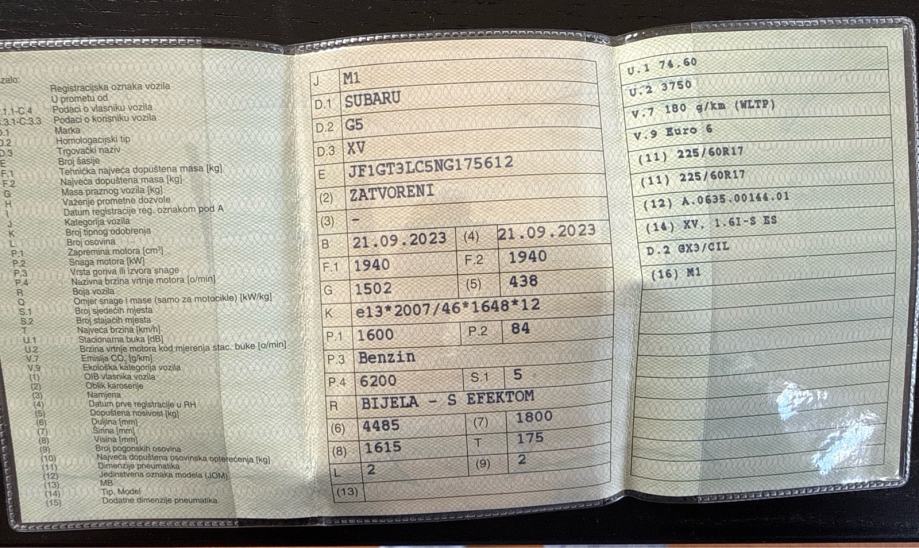 zalo:
Registracijska oznaka vozila
U prometu od
.1.1-C.4 Podaci o vlasniku vozila
.3.1-C.3.3 Podaci o korisniku vozila
D.1 Marka
D.2 Homologacijski tip
D.3 Trgovački naziv
E Broj šasije
F.1 Tehnička najveća dopuštena masa [kg]
F.2 Najveća dopuštena masa [kg]
G Masa praznog vozila [kg]
H Važenje prometne dozvole
I Datum registracije reg. oznakom pod A
J Kategorija vozila
K Broj tipnog odobrenja
L Broj osovina
P.1 Zapremina motora [cm³]
P.2 Snaga motora [kW]
P.3 Vrsta goriva ili izvora snage
P.4 Nazivna brzina vrtnje motora [o/min]
R Boja vozila
Q Omjer snage i mase (samo za motocikle) [kW/kg]
S.1 Broj sjedećih mjesta
S.2 Broj stajaćih mjesta
T Najveća brzina [km/h]
U.1 Stacionarna buka [dB]
U.2 Brzina vrtnje motora kod mjerenja stac. buke [o/min]
V.7 Emisija CO₂ [g/km]
V.9 Ekološka kategorija vozila
(1) OIB vlasnika vozila
(2) Oblik karoserije
(3) Namjena
(4) Datum prve registracije u RH
(5) Dopuštena nosivost [kg]
(6) Duljina [mm]
(7) Širina [mm]
(8) Visina [mm]
(9) Broj pogonskih osovina
(10) Najveća dopuštena osovinska opterećenja [kg]
(11) Dimenzije pneumatika
(12) Jedinstvena oznaka modela (JOM)
(13) MB
(14) Tip, Model
(15) Dodatne dimenzije pneumatika
J M1
D.1 SUBARU
D.2 G5
D.3 XV
E JF1GT3LC5NG175612
(2) ZATVORENI
(3) –
B 21.09.2023 (4) 21.09.2023
F.1 1940 F.2 1940
G 1502 (5) 438
K e13*2007/46*1648*12
P.1 1600 P.2 84
P.3 Benzin
P.4 6200 S.1 5
R BIJELA - S EFEKTOM
(6) 4485 (7) 1800
(8) 1615 T 175
L 2 (9) 2
(13)
U.1 74.60
U.2 3750
V.7 180 g/km (WLTP)
V.9 Euro 6
(11) 225/60R17
(11) 225/60R17
(12) A.0635.00144.01
(14) XV. 1.6I-S ES
D.2 GX3/CIL
(16) M1